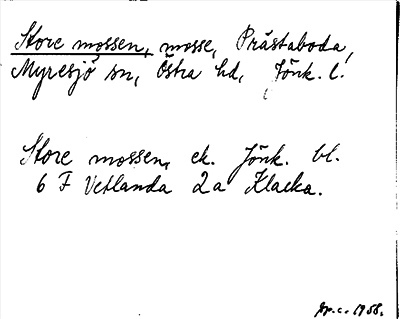 Store mossen, mosse, Prästaboda,
Myresjö sn, Östra hd, Jönk. l.
Store mossen, ek. Jönk. bl.
6 F Vetlanda 2a Klacka.
1958.